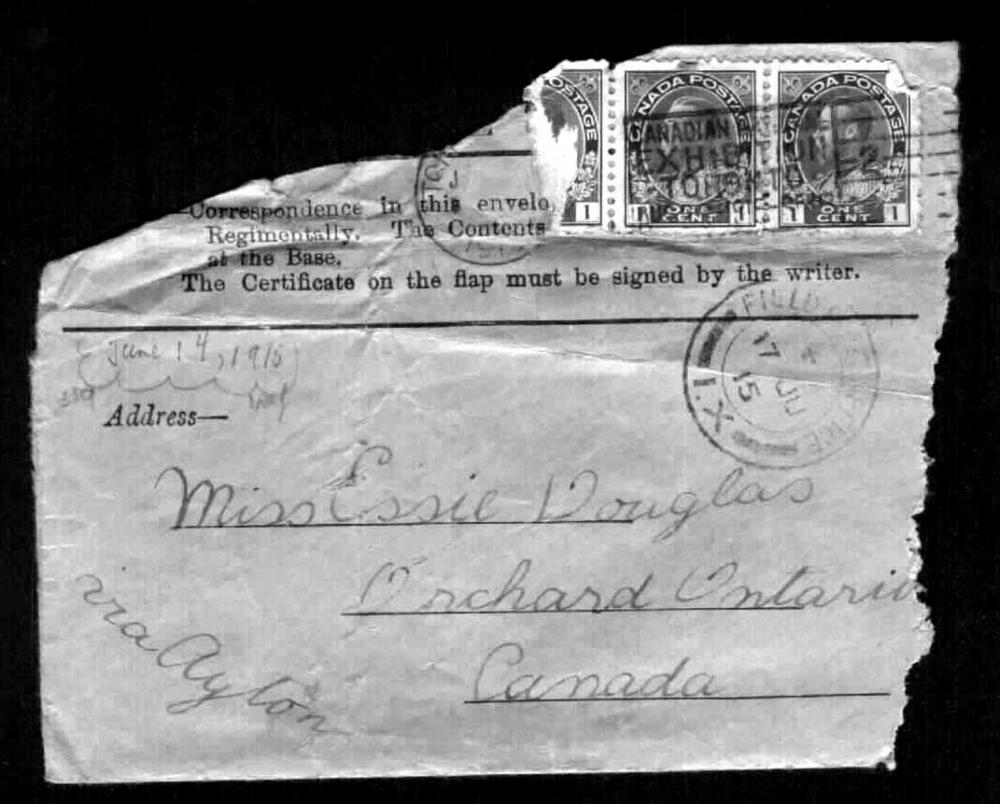 OSTAGE CANADA POSTAGE CANADA POSTAGE
CANADIAN
EXHIB
TORON
1 1 ONE CENT 1 1 ONE CENT 1
Correspondence in this envelo
Regimentally. The Contents
at the Base.
The Certificate on the flap must be signed by the writer.
June 14, 1915
17 JU
15
I.X
Address—
Miss Essie Douglas
Orchard Ontario
Canada
via Ayton